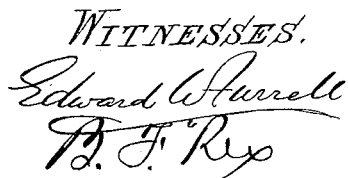 WITNESSES.
Edward W Furrell
B. F. Rex